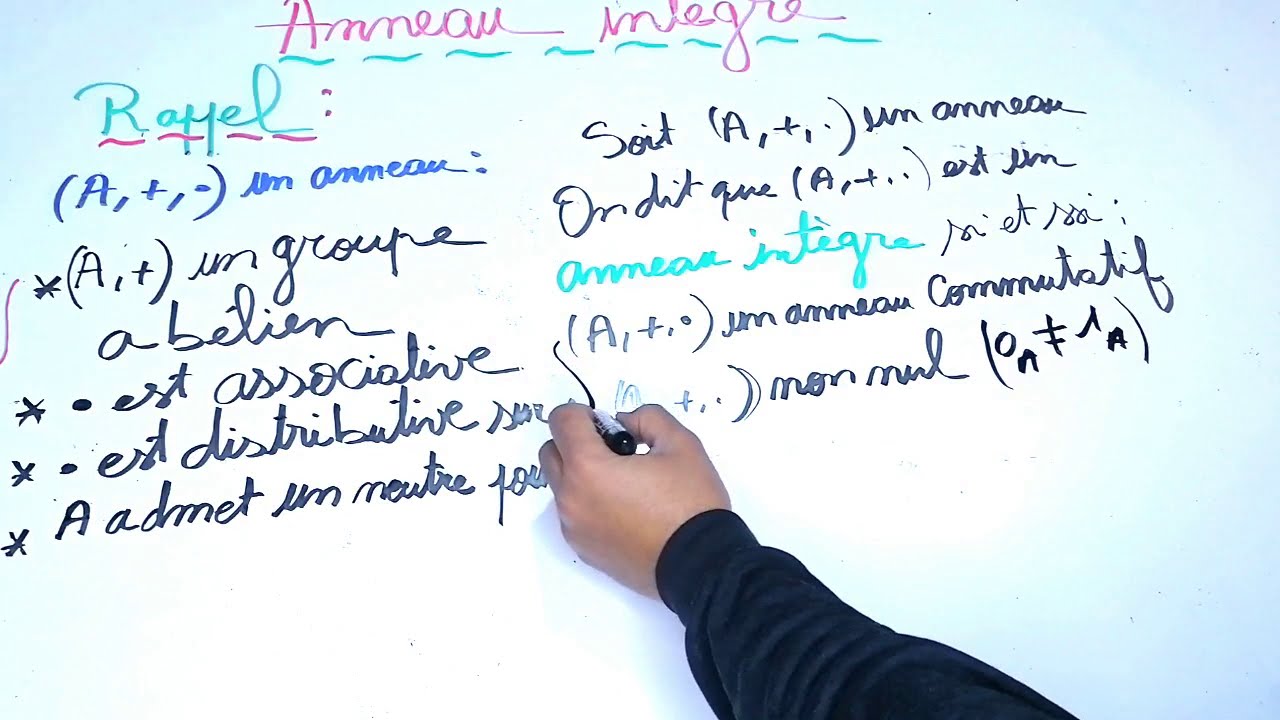 Anneau intègre
Rappel :
(A, +, •) un anneau :
* (A, +) un groupe
abélien
* • est associative
* • est distributive sur
* A admet un neutre
Soit (A, +, .) un anneau
On dit que (A, +, .) est un
anneau intègre si et ssi :
(A, +, •) un anneau Commutatif
(A, +, .) non nul (0_A ≠ 1_A)